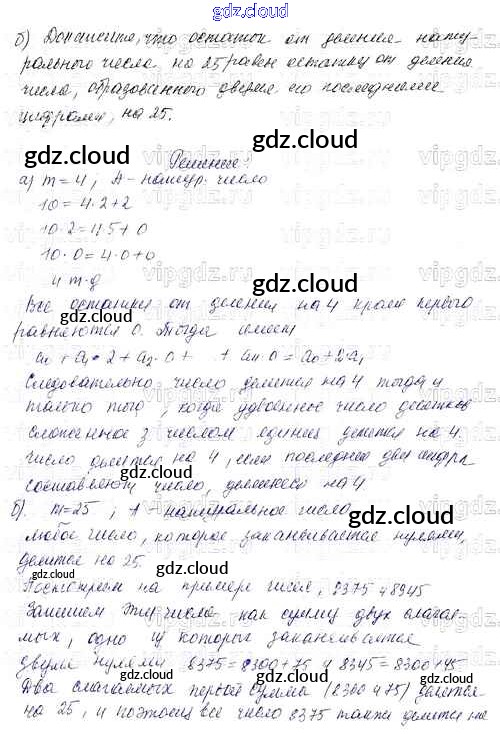 gdz.cloud
б) Докажите, что остаток от деления нату-
рального числа на 25 равен остатку от деления
числа, образованного двумя его последними
цифрами, на 25.
gdz.cloud
gdz.cloud
Решение:
gdz.cloud
а) m=4; A - натур. число
10=4·2+2
10·2=4·5+0
10·0=4·0+0
и т.д
gdz.cloud
Все остатки от деления на 4 кроме первого
равняются 0. Тогда имеем
gdz.cloud
gdz.cloud
a₀ + a₁·2 + a₂·0 + + aₙ·0 = a₀+2·a₁
Следовательно число делится на 4 тогда и
только того, когда удвоенное число десятков
сложенное з числом единиц делится на 4.
число делится на 4, если последние две цифры
gdz.cloud
составляют число, делящееся на 4
gdz.cloud
б). m=25, A - натуральное число,
gdz.cloud
любое число, которое заканчивается нулями,
делится на 25.
gdz.cloud
gdz.cloud
Посмотрим на примере чисел, 8375 и 8345
Запишем эти числа как сумму двух слагае-
мых, одно из которых заканчивается
gdz.cloud
двумя нулями 8375=8300+75 и 8345=8300+45
gdz.cloud
gdz.cloud
Два слагаемых первой суммы (8300 и 75) делятся
на 25, и поэтому все число 8375 также делится на